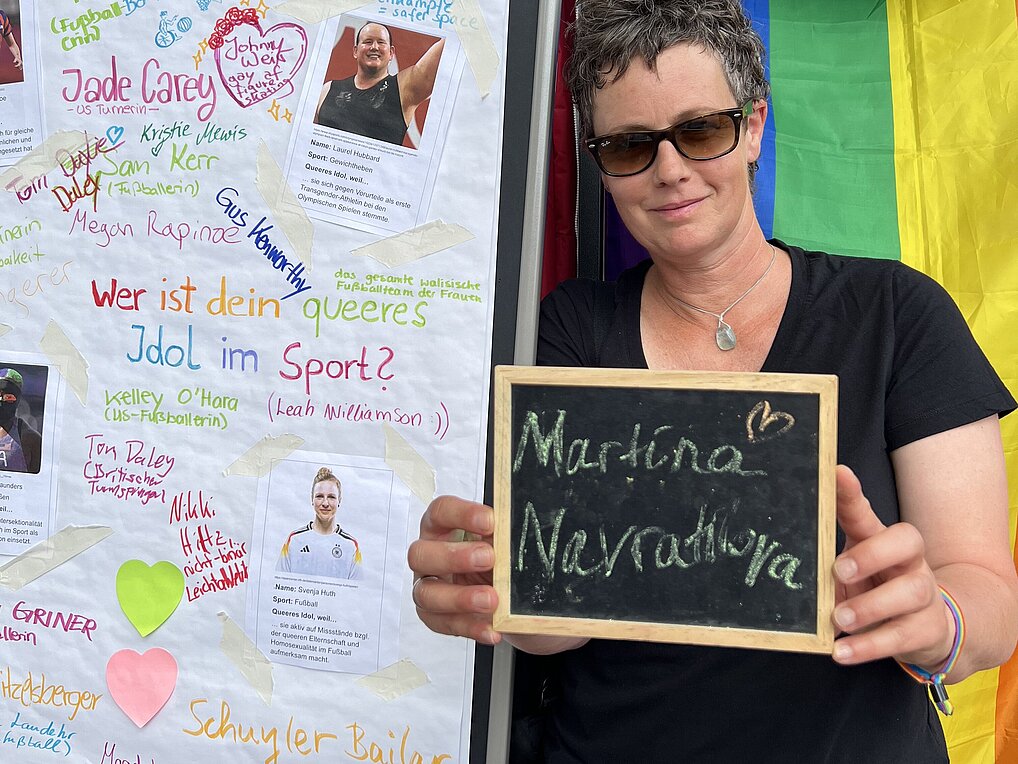 (Fußball-Bo
CHN)
= safer space
Johnny
Weir
gay af
figure
skating
Jade Carey
- US Turnerin -
Kristie Mewis
Sam Kerr
(Fußballerin)
Tom Daley
Megan Rapinoe
Gus Kenworthy
Name: Laurel Hubbard
Sport: Gewichtheben
Queeres Idol, weil...
... sie sich gegen Vorurteile als erste
Transgender-Athletin bei den
Olympischen Spielen stemmte.
das gesamte walisische
Fußballteam der Frauen
Wer ist dein queeres
Idol im Sport?
Kelley O'Hara
(US-Fußballerin)
(Leah Williamson :))
Tom Daley
(Britischer
Turmspringer)
Nikki
Hiltz...
nicht-binär
Leichtathletik
Name: Svenja Huth
Sport: Fußball
Queeres Idol, weil...
... sie aktiv auf Missstände bzgl.
der queeren Elternschaft und
Homosexualität im Fußball
aufmerksam macht.
GRINER
llerin)
itzelsberger
Landehr
Fußball)
Schuyler Bailar
Ray-Ban
Martina
Navratilova